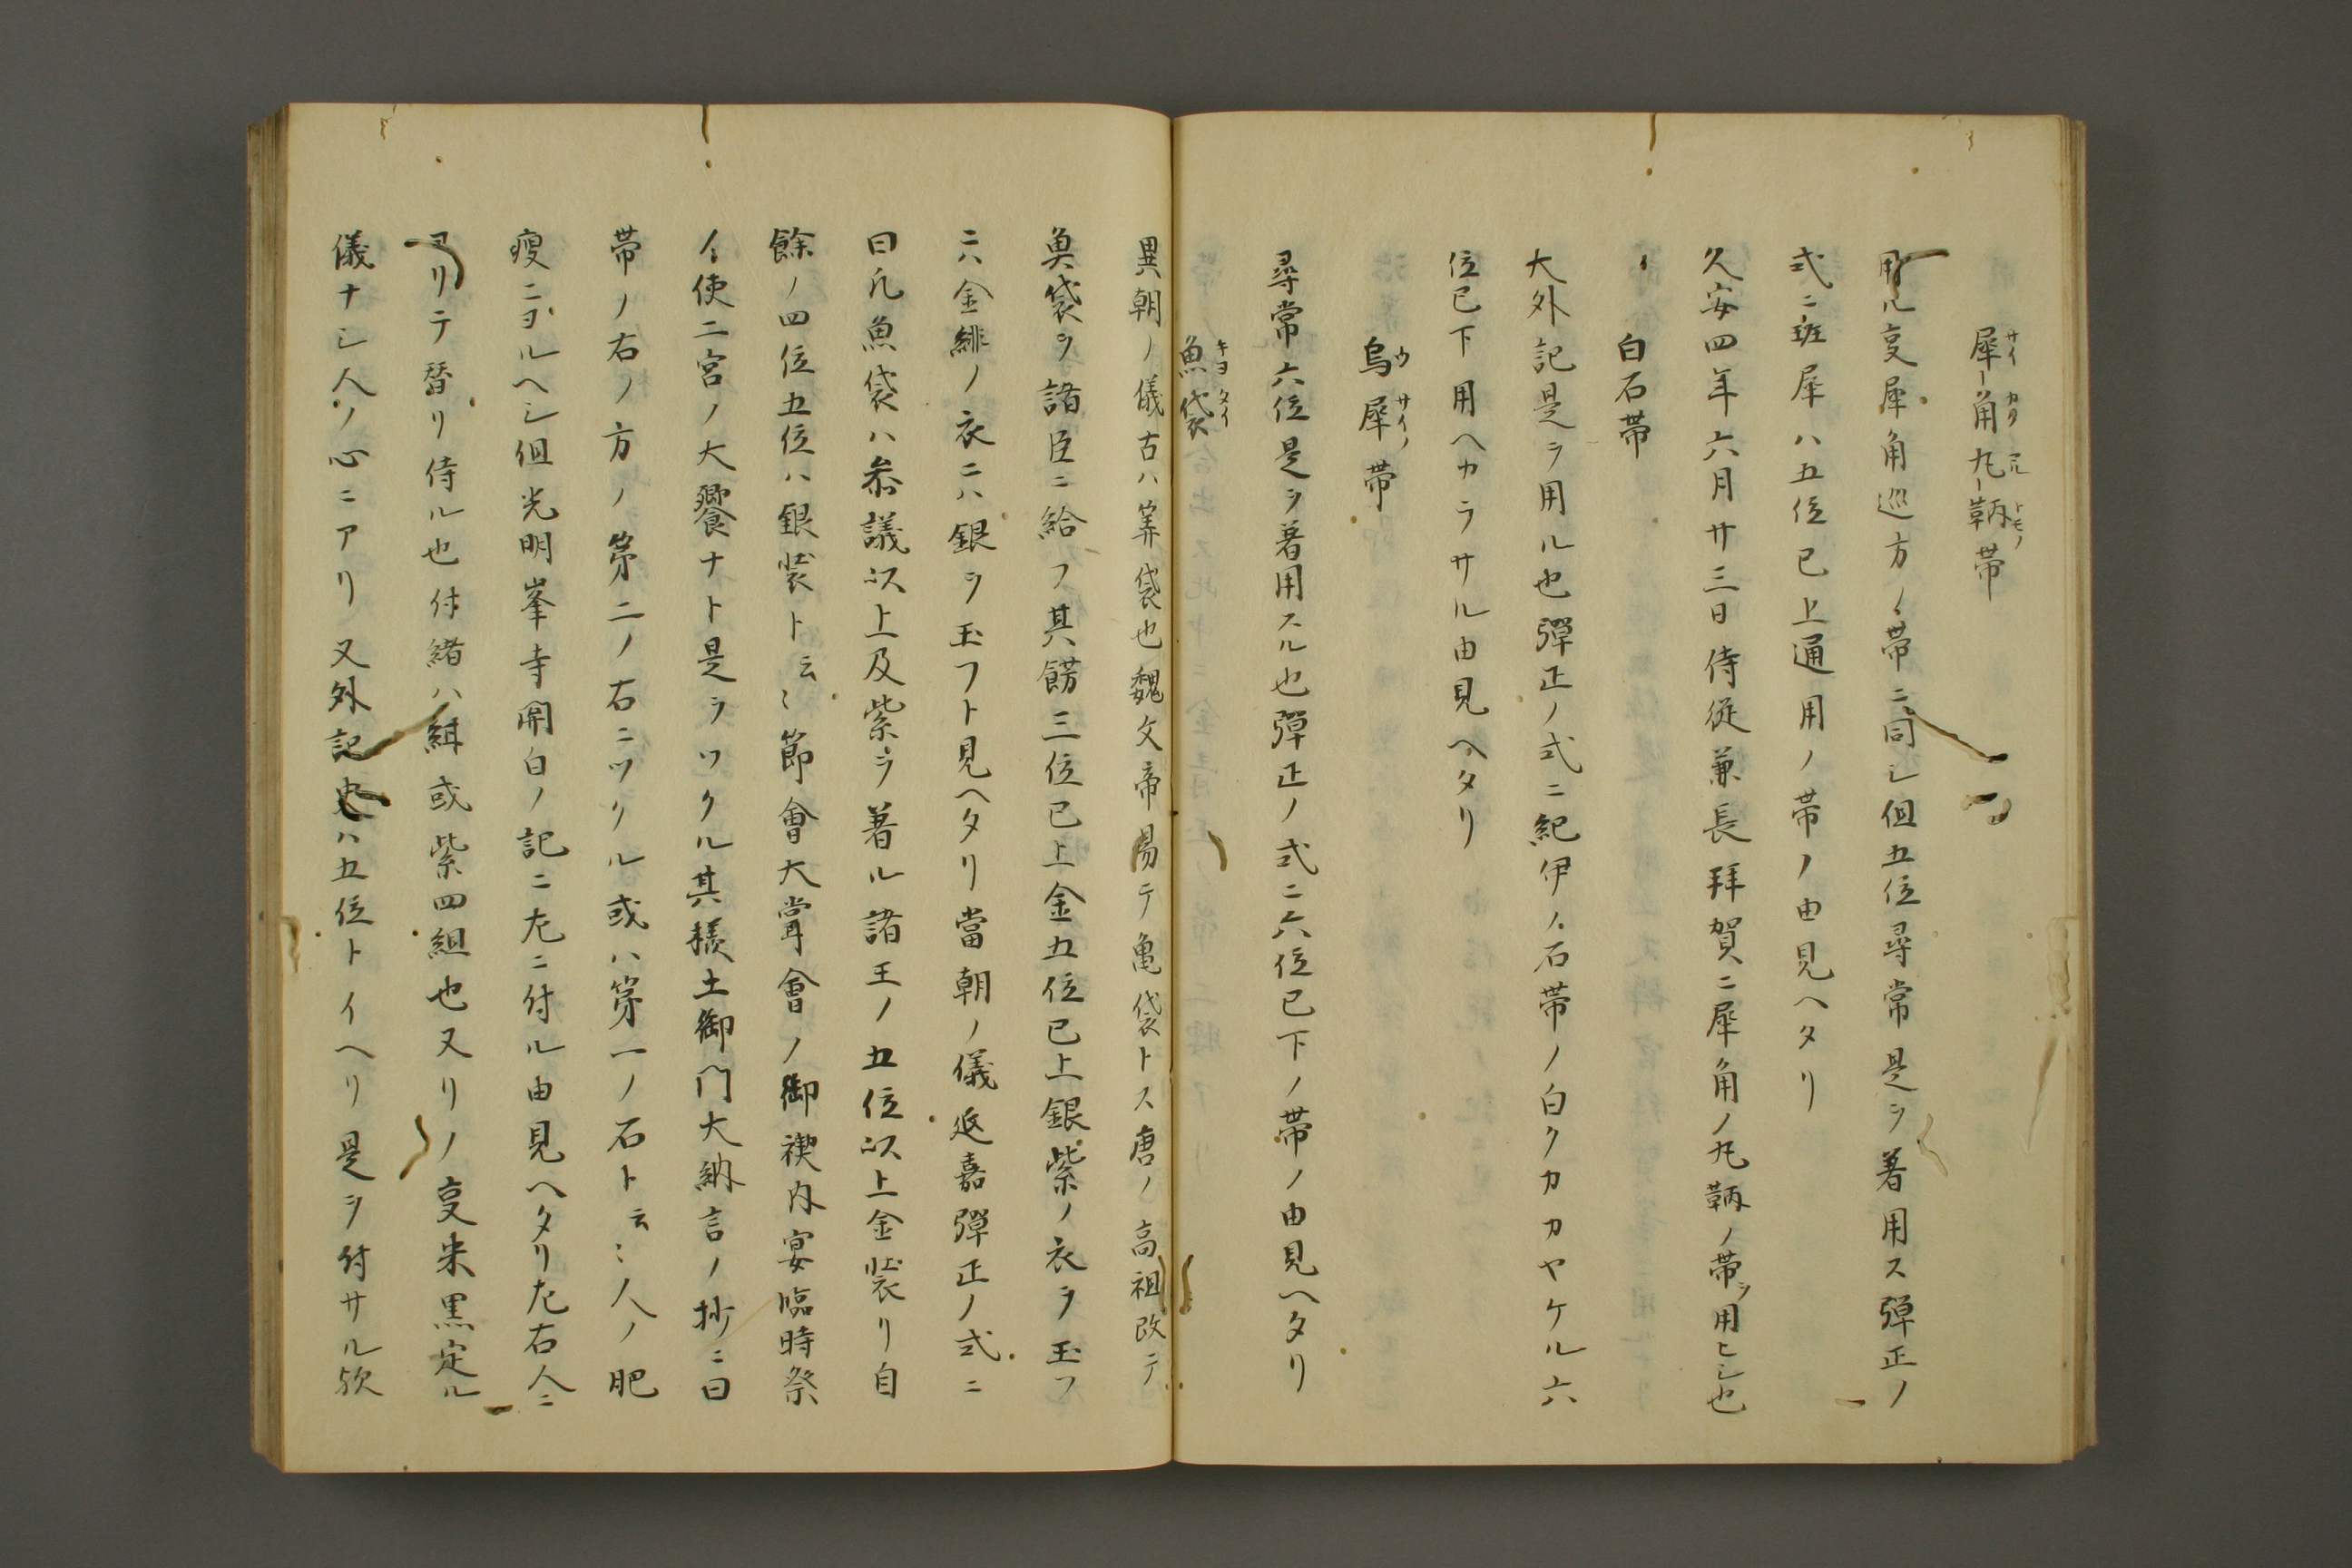 犀角丸鞆帯
用ル㕝犀角巡方ノ帯ニ同シ但五位尋常是ヲ著用ス弾正ノ
式ニ班犀ハ五位已上通用ノ帯ノ由見ヘタリ
久安四年六月廿三日侍従兼長拝賀ニ犀角ノ丸鞆ノ帯ヲ用ヒシ也
白石帯
大外記是ヲ用ル也弾正ノ式ニ紀伊ノ石帯ノ白クカカヤケル六
位已下用ヘカラサル由見ヘタリ
烏犀帯
尋常六位是ヲ著用スル也弾正ノ式ニ六位已下ノ帯ノ由見ヘタリ
魚袋
異朝ノ儀古ハ筭袋也魏文帝易テ亀袋トス唐ノ高祖改テ
魚袋ヲ諸臣ニ給フ其餝三位已上金五位已上銀紫ノ衣ヲ玉フ
ニハ金緋ノ衣ニハ銀ヲ玉フト見ヘタリ當朝ノ儀延嘉弾正ノ式ニ
曰凡魚袋ハ参議以上及紫ヲ著ル諸王ノ五位以上金装リ自
餘ノ四位五位ハ銀装ト云〻節會大甞會ノ御禊内宴臨時祭
ノ使二宮ノ大饗ナト是ヲツクル其様土御門大納言ノ抄ニ曰
帯ノ右ノ方ノ第二ノ石ニツクル或ハ第一ノ石ト云〻人ノ肥
瘦ニヨルヘシ但光明峯寺関白ノ記ニ左ニ付ル由見ヘタリ左右人ニ
ヨリテ替リ侍ル也付緒ハ緝或紫四組也又リノ㕝朱黒定ル
儀ナシ人ノ心ニアリ又外記史ハ五位トイヘリ是ヲ付サル歟